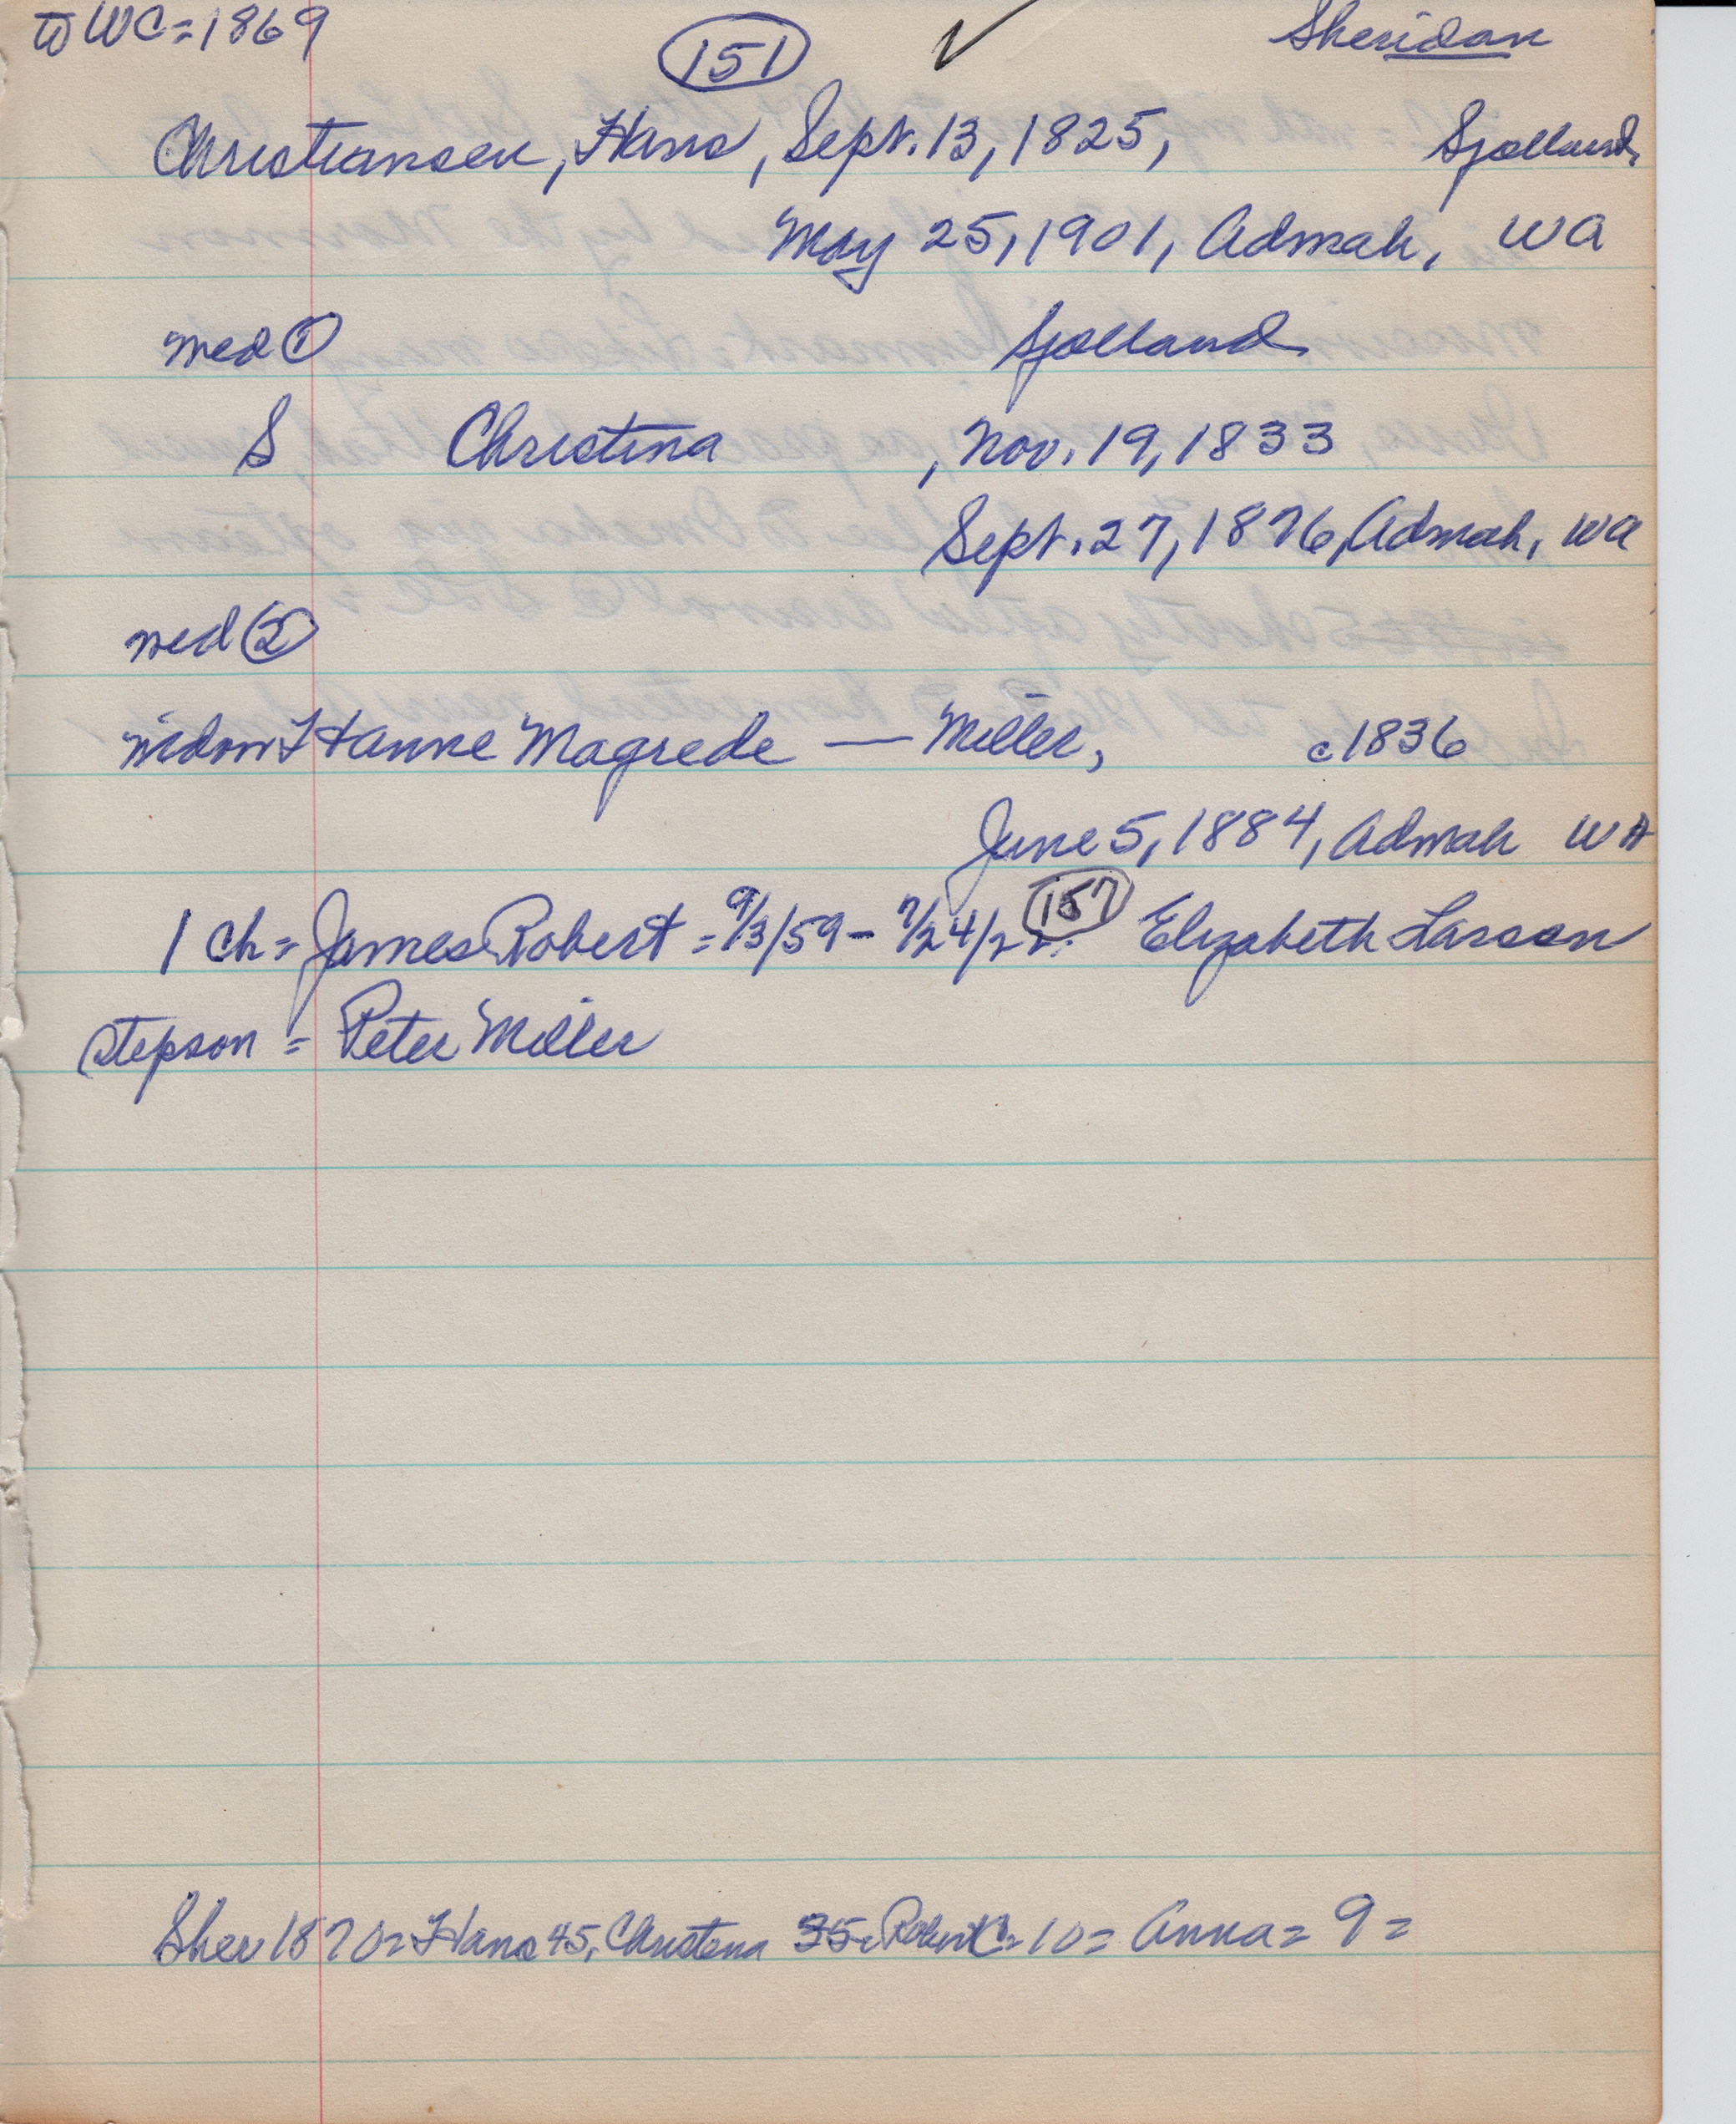 to WC=1869 151 ✓ Sheridan
Christiansen, Hans, Sept. 13, 1825, Sjolland,
May 25, 1901, Admah, WA
med ① Sjolland
S Christina , Nov. 19, 1833
Sept. 27, 1876, Admah, WA
med ②
widow Hanne Magrede — Miller, c1836
June 5, 1884, Admah WA
1 ch = James Robert = 9/3/59 - 7/24/22. 157 Elizabeth Larson
stepson = Peter Miller
Sher 1870 = Hans 45, Christena 35, Robert C = 10 = Anna = 9 =